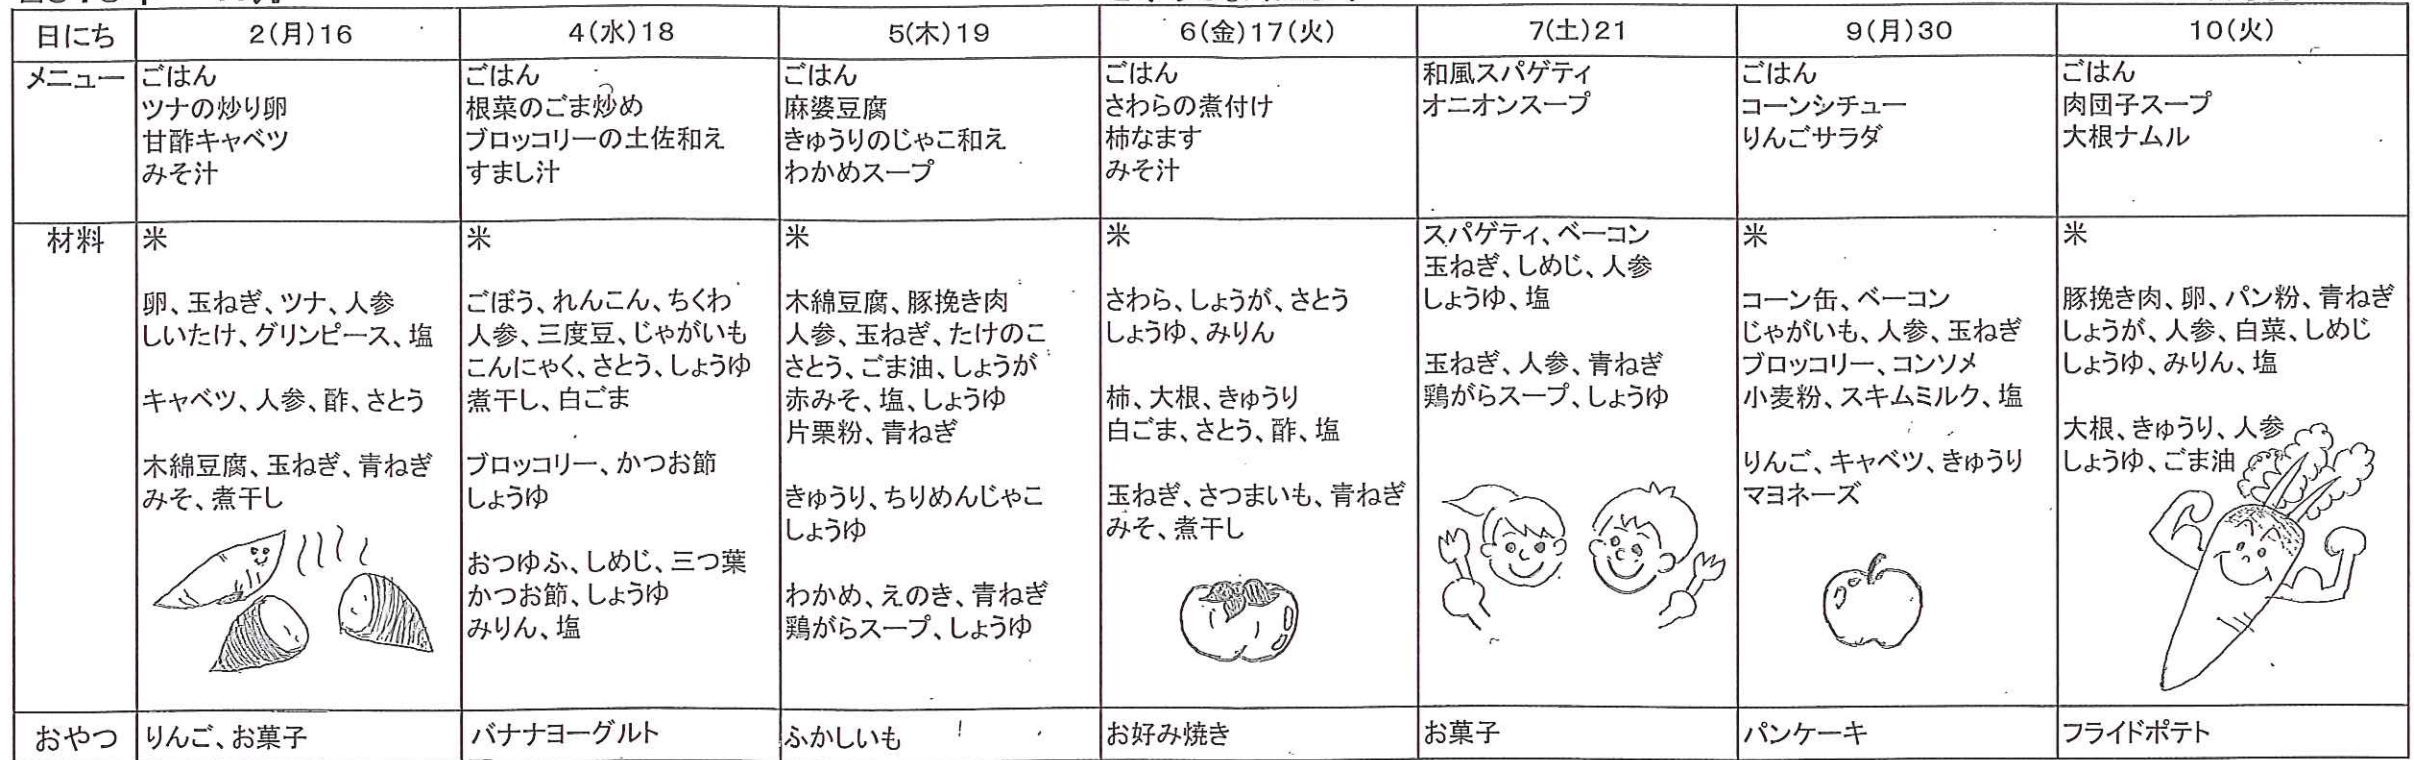 日にち
2(月)16
4(水)18
5(木)19
6(金)17(火)
7(土)21
9(月)30
10(火)
メニュー
ごはん
ツナの炒り卵
甘酢キャベツ
みそ汁
ごはん
根菜のごま炒め
ブロッコリーの土佐和え
すまし汁
ごはん
麻婆豆腐
きゅうりのじゃこ和え
わかめスープ
ごはん
さわらの煮付け
柿なます
みそ汁
和風スパゲティ
オニオンスープ
ごはん
コーンシチュー
りんごサラダ
ごはん
肉団子スープ
大根ナムル
材料
米
卵、玉ねぎ、ツナ、人参
しいたけ、グリンピース、塩
キャベツ、人参、酢、さとう
木綿豆腐、玉ねぎ、青ねぎ
みそ、煮干し
米
ごぼう、れんこん、ちくわ
人参、三度豆、じゃがいも
こんにゃく、さとう、しょうゆ
煮干し、白ごま
ブロッコリー、かつお節
しょうゆ
おつゆふ、しめじ、三つ葉
かつお節、しょうゆ
みりん、塩
米
木綿豆腐、豚挽き肉
人参、玉ねぎ、たけのこ
さとう、ごま油、しょうが
赤みそ、塩、しょうゆ
片栗粉、青ねぎ
きゅうり、ちりめんじゃこ
しょうゆ
わかめ、えのき、青ねぎ
鶏がらスープ、しょうゆ
米
さわら、しょうが、さとう
しょうゆ、みりん
柿、大根、きゅうり
白ごま、さとう、酢、塩
玉ねぎ、さつまいも、青ねぎ
みそ、煮干し
スパゲティ、ベーコン
玉ねぎ、しめじ、人参
しょうゆ、塩
玉ねぎ、人参、青ねぎ
鶏がらスープ、しょうゆ
米
コーン缶、ベーコン
じゃがいも、人参、玉ねぎ
ブロッコリー、コンソメ
小麦粉、スキムミルク、塩
りんご、キャベツ、きゅうり
マヨネーズ
米
豚挽き肉、卵、パン粉、青ねぎ
しょうが、人参、白菜、しめじ
しょうゆ、みりん、塩
大根、きゅうり、人参
しょうゆ、ごま油
おやつ
りんご、お菓子
バナナヨーグルト
ふかしいも
お好み焼き
お菓子
パンケーキ
フライドポテト